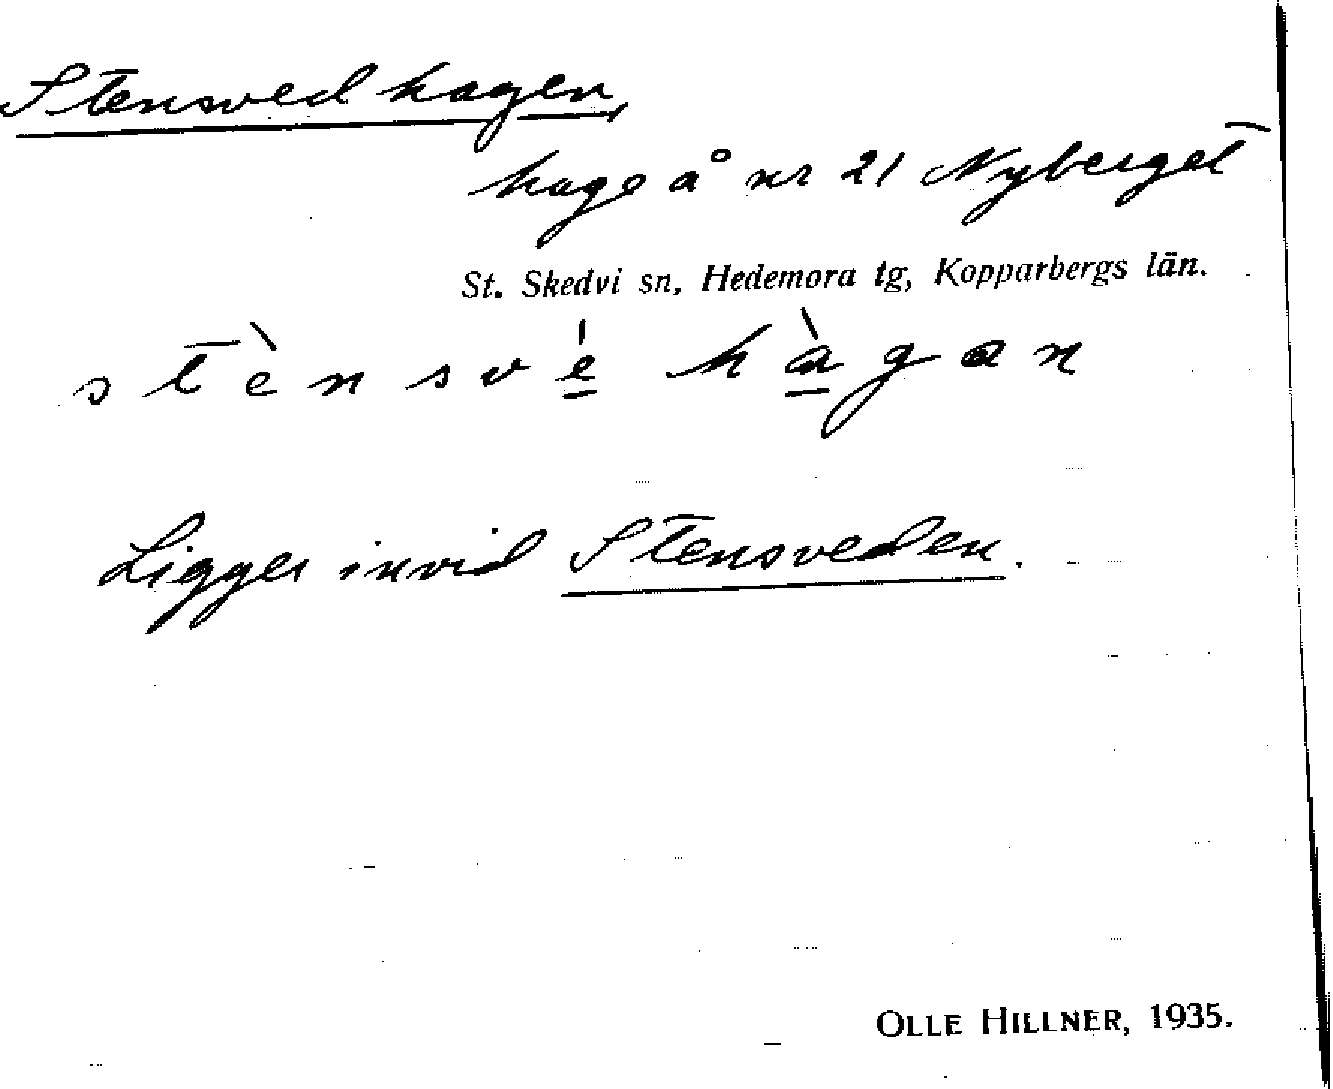 Stensvedhagen,
hage å nr 21 Nyberget
St. Skedvi sn, Hedemora tg, Kopparbergs län.
stè̀nsvé̱ hà̱gan
Ligger invid Stensveden.
OLLE HILLNER, 1935.